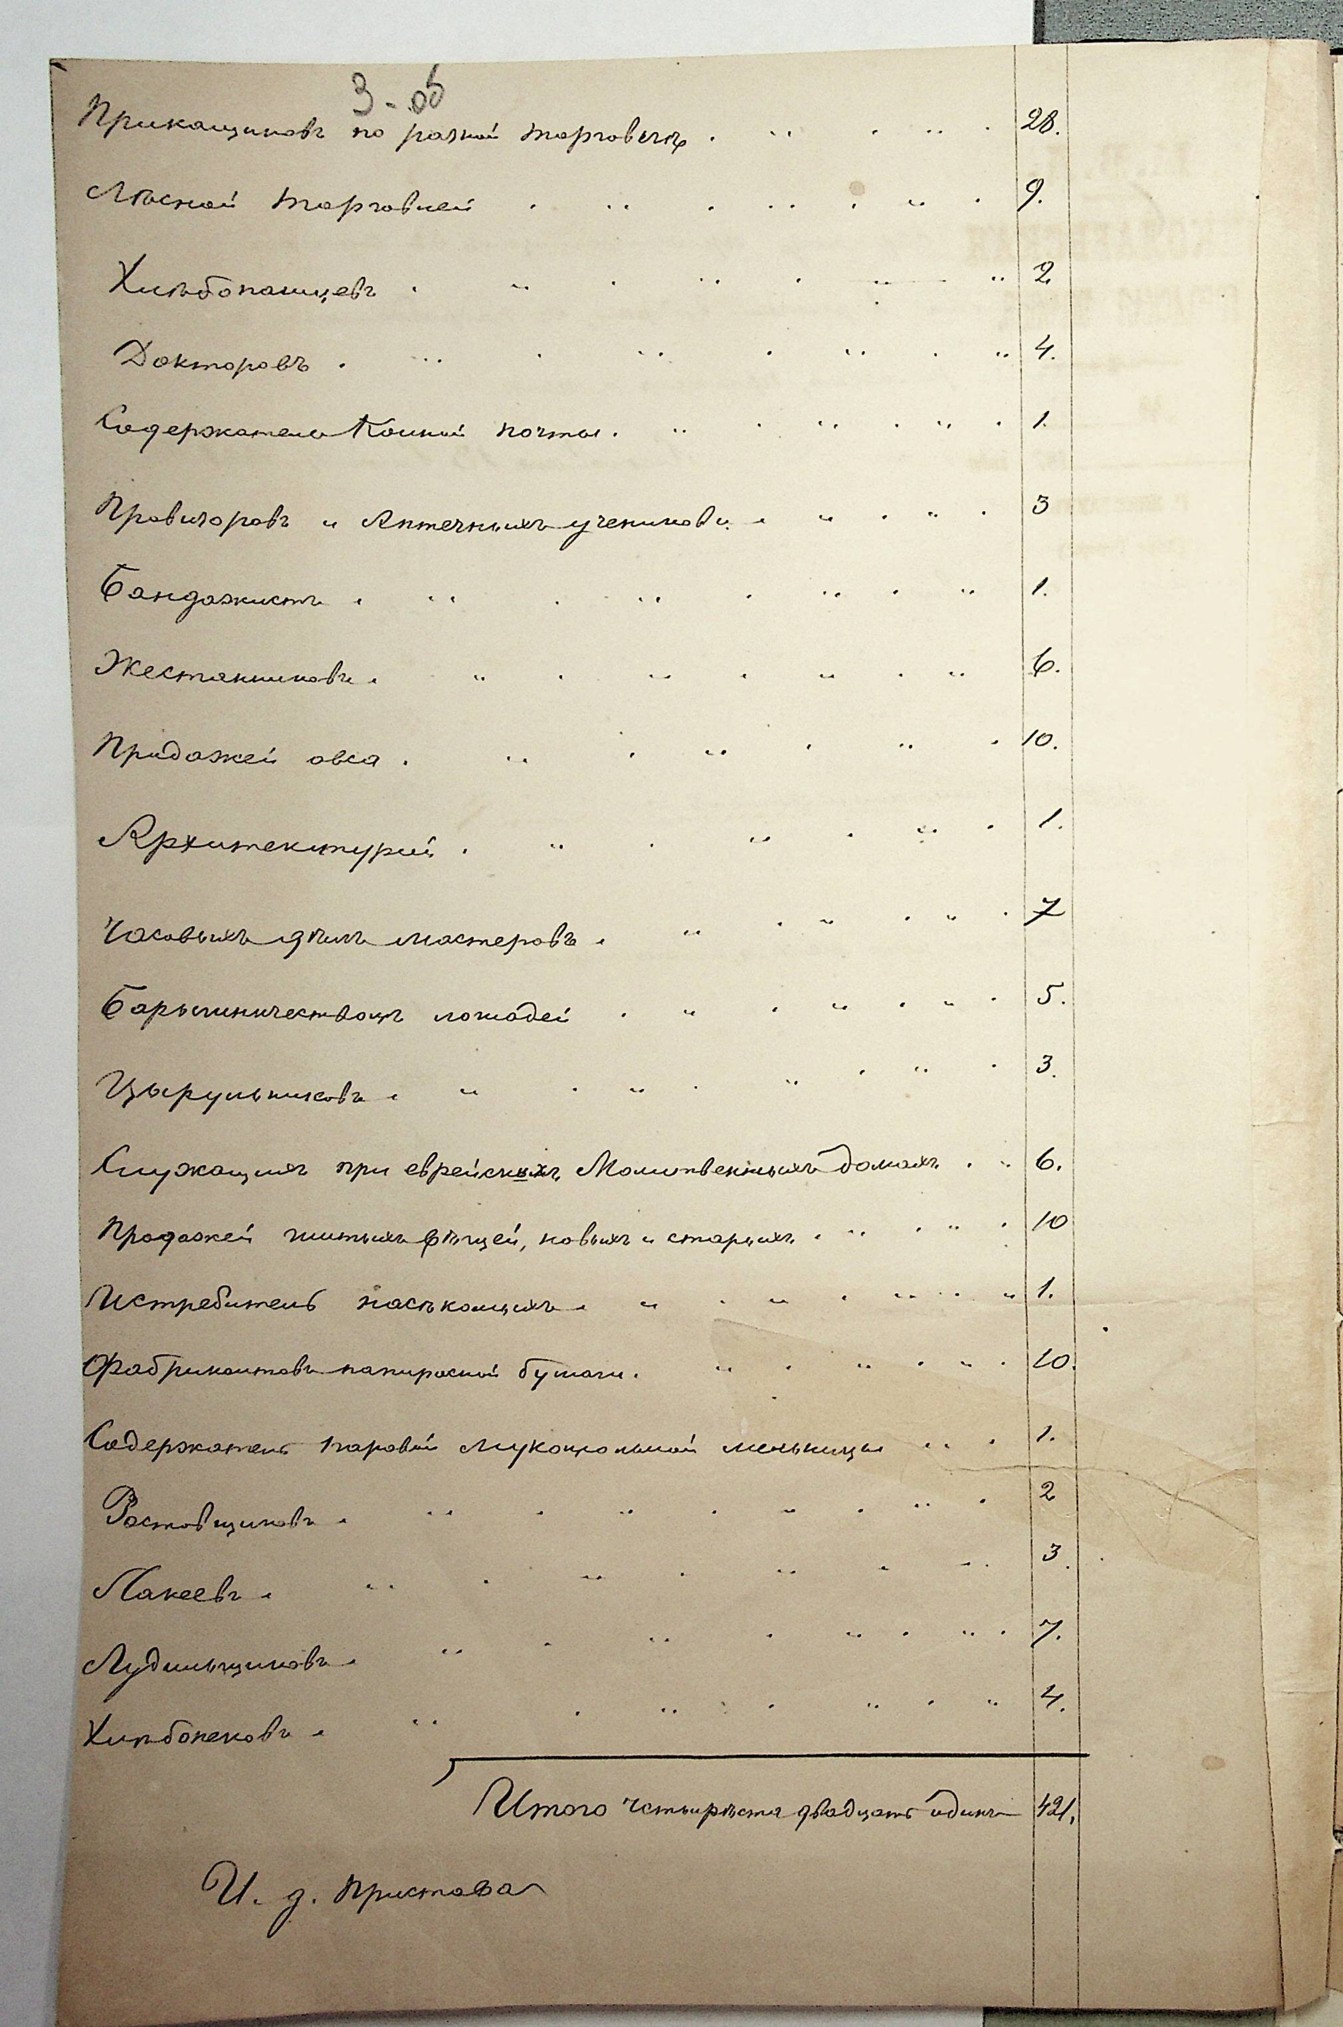 3-об
Прикащиковъ по разной торговлѣ 28.
Лѣсной торговлей 9.
Хлѣбопашцевъ 2
Докторовъ 4.
Содержатель Конной почты 1.
Провизоровъ и Аптечныхъ учениковъ 3
Бандажистъ 1.
Жестянниковъ 6.
Продажей овса 10.
Архитектурой 1.
Часовыхъ дѣлъ мастеровъ 7
Барышничествомъ лошадей 5.
Цырульниковъ 3.
Служащихъ при еврейскихъ Молитвенныхъ домахъ 6.
Продажей шитыхъ вѣщей, новыхъ и старыхъ 10
Истребитель насѣкомыхъ 1.
Фабрикантовъ папиросной бумаги 10.
Содержатель паровой мукомольной мельницы 1.
Ростовщиковъ 2
Лакеевъ 3.
Лудильщиковъ 7.
Хлѣбопековъ 4.
Итого четыреста двадцать одинъ 421.
И. д. Пристава